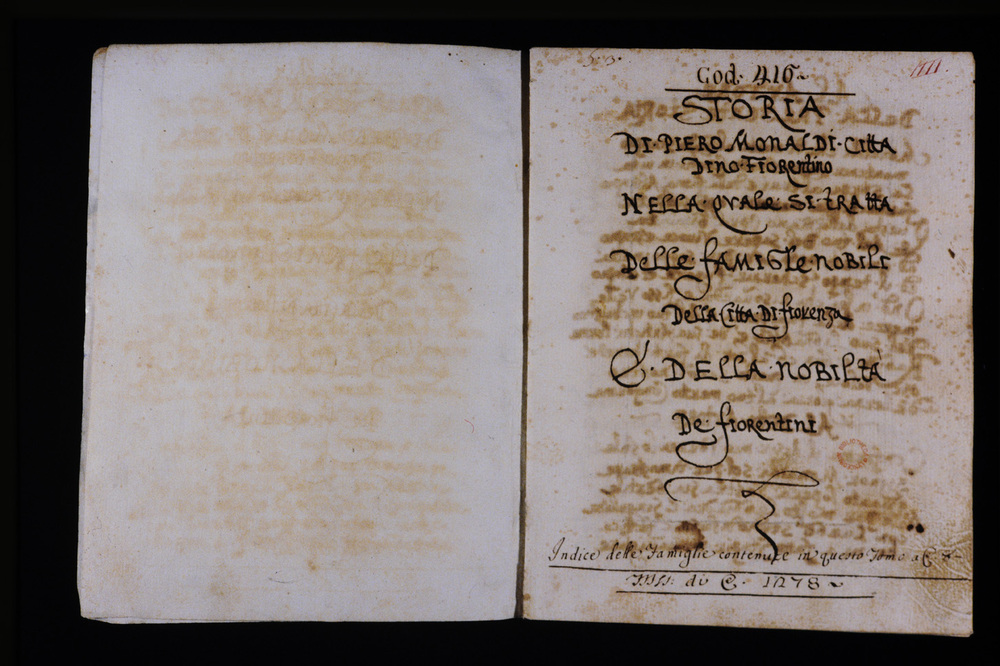 Cod. 416
STORIA
DI·PIERO MONALDI·Citta
Dino·Fiorentino
NELLA·QVALE·SI·TRATTA
Delle·famigle nobili
Della·Citta·Di fiorenza
E·DELLA·NOBILTÀ
De·fiorentini
Indice delle Famiglie contenute in questo Tomo a C.
di C. 1278